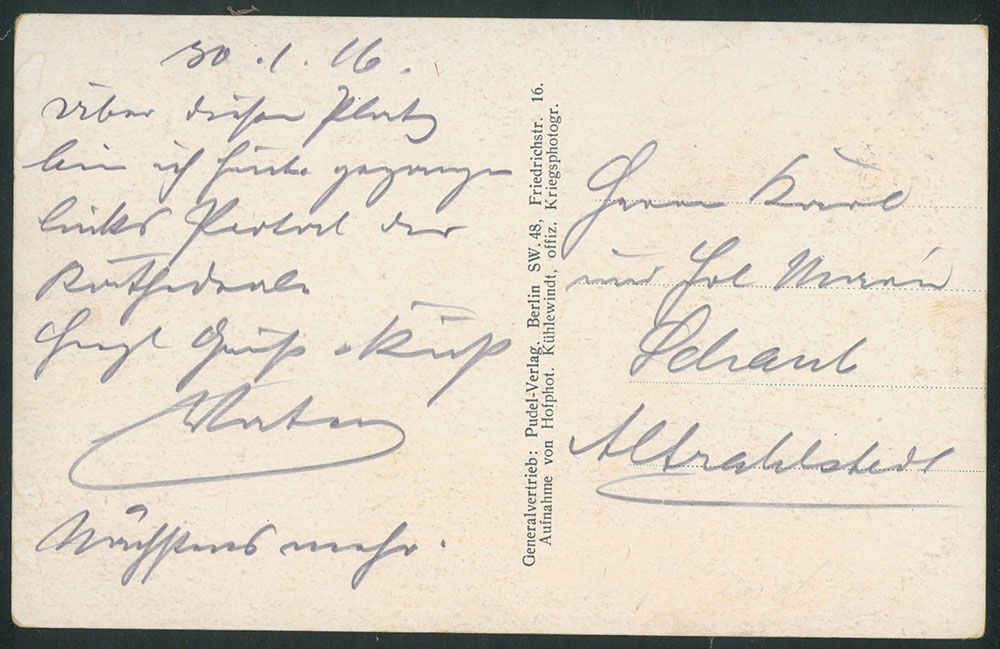 30.1.16.
Über diesen Platz
bin ich heute gegangen
links Portal der
Kathedrale
Hrzl Gruß & Kuß
Vater
Nächstens mehr.
Generalvertrieb: Pudel-Verlag, Berlin SW. 48, Friedrichstr. 16.
Aufnahme von Hofphot. Kühlewindt, offiz. Kriegsphotogr.
Herrn Karl
und Frl
Schaub
Altrahlstedt